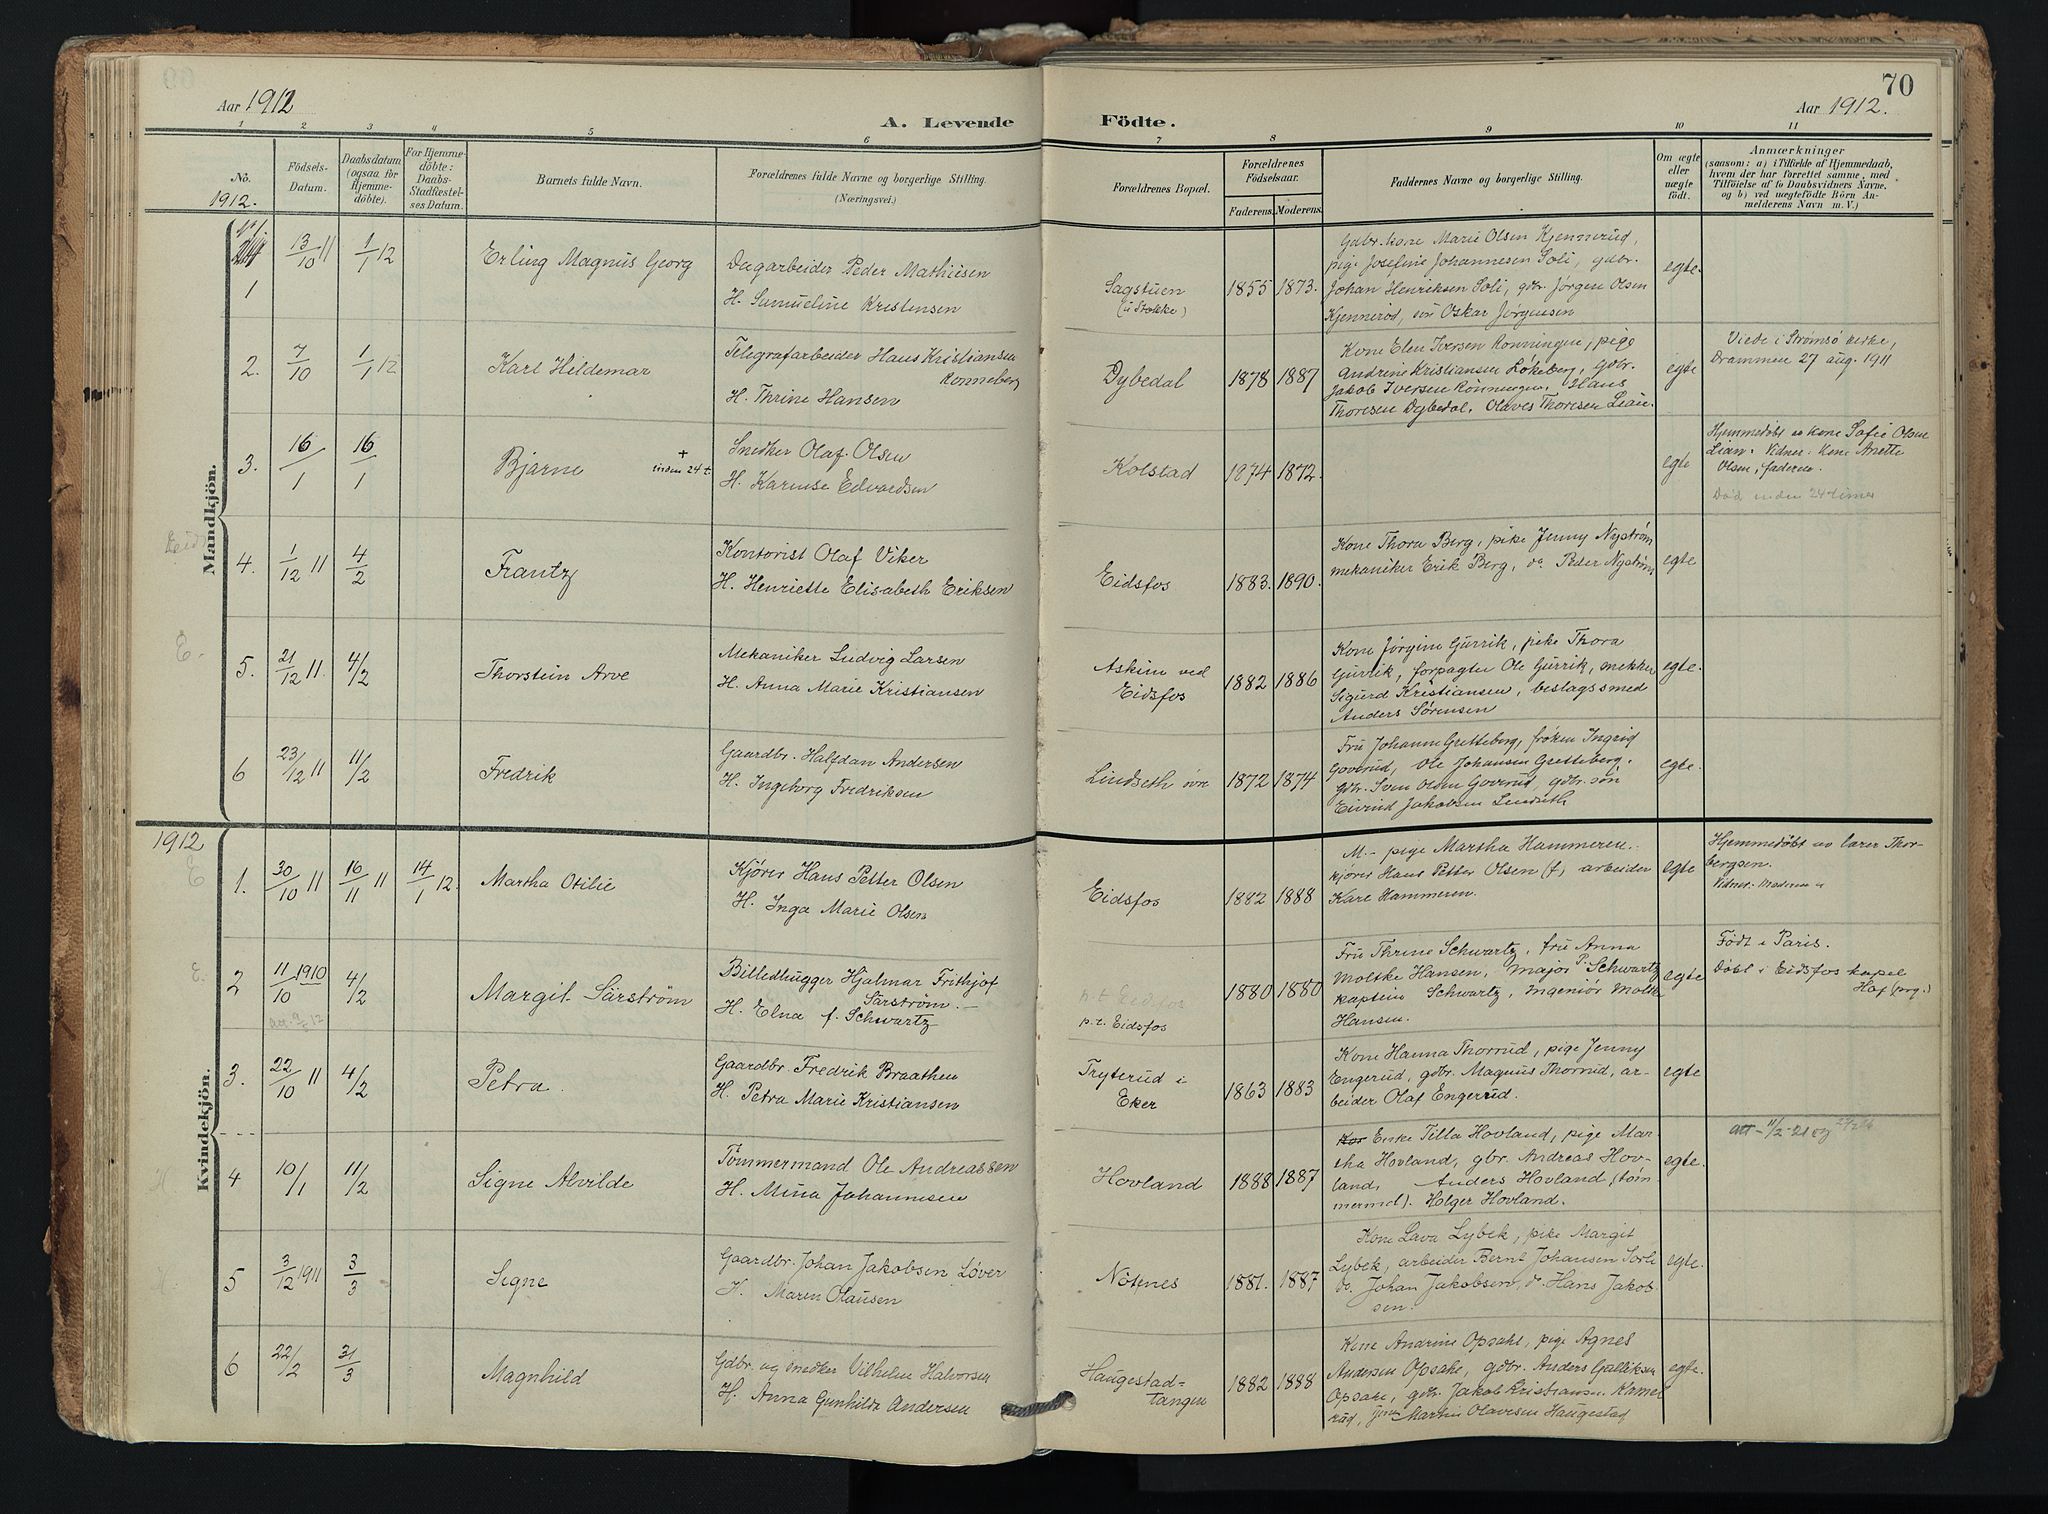 Aar 1912
A. Levende
1 2 3 4 5 6
No.
1912.
Födsels-
Datum.
Daabsdatum
(ogsaa for
Hjemme-
döbte).
For Hjemme-
döbte:
Daabs-
Stadfæstel-
ses Datum.
Barnets fulde Navn.
Forældrenes fulde Navne og borgerlige Stilling.
(Næringsvei.)
Mandkjön.
1
13/10 11
1/1 12
Erling Magnus Georg
Dagarbeider Peder Mathiesen
H. Samueline Kristensen
2.
7/10
1/1 12
Karl Hildemar
Telegrafarbeider Hans Kristiansen
Ronneberg
H. Thrine Hansen
3.
16/1
16/1
Bjarne
+
inden 24 t.
Snedker Olaf Olsen
H. Karense Edvardsen
4.
1/12 11
4/2
Frantz
Kontorist Olaf Viker
H. Henriette Elisabeth Eriksen
E.
5.
21/12 11.
4/2
Thorstein Arve
Mekaniker Ludvig Larsen
H. Anna Marie Kristiansen
6
23/12 11
11/2
Fredrik
Gaardbr. Halfdan Andersen
H. Ingeborg Fredriksen
1912
Kvindekjön.
E
1.
30/10 11
16/11 11
14/1 12.
Martha Otilie
Kjører Hans Petter Olsen
H. Inga Marie Olsen
E.
2
11/10 1910
att. 12
4/2
Margit Särström
Billedhugger Hjalmar Frithjof
Särström.-
H. Elna f. Schwartz
3.
22/10 11
4/2
Petra.
Gaardbr. Fredrik Braathen
H. Petra Marie Kristiansen
4
10/1
11/2
Signe Alvilde
Tömmermand Ole Andreassen
H. Mina Johannesen
5
3/12 1911
3/3
Signe
Gaardbr. Johan Jakobsen Løver
H. Maren Olausen
6
22/2
31/3
Magnhild
Gdbr. og snedker Vilhelm Halvorsen
H. Anna Gunhilda Andersen
70
Aar 1912.
Födte.
7 8 9 10 11
Forældrenes Bopæl.
Forældrenes
Födselsaar.
Faderens. Moderens.
Faddernes Navne og borgerlige Stilling.
Om ægte
eller
uægte
födt.
Anmærkninger
(saasom: a) i Tilfælde af Hjemmedaab,
hvem der har forrettet samme, med
Tilföielse af to Daabsvidners Navne,
og b) ved uægtefödte Börn An-
melderens Navn m. V.)
Sagstuen
(u Stokke)
1855 1873.
Gdbr. kone Marie Olsen Kjennerud,
pige Josefine Johannesen Soli, gdbr.
Johan Henriksen Soli, gdbr Jörgen Olsen
Kjennerod, søn Oskar Jørgensen
egte.
Dybedal
1878 1887
Kone Elen Iversen Rönningen, pige
Andrine Kristiansen Løkeberg, gdbr.
Jakob Iversen Rönningen, Hans
Thoresen Dybedal, Olaves Thoresen Lian.
egte
Viede i Strømsö kirke,
Drammen 27 aug. 1911
Kolstad
1874 1872.
egte
Hjemmedøbt av kone Sofie Olsen
Lian. Vidner: Kone Anette
Olsen, faderen.
Død inden 24 timer
Eidsfos
1883. 1890.
Kone Thora Berg, pike Jenny Nyström
mekaniker Erik Berg, do Peder Nyström
egte
Askim ved
Eidsfos
1882 1886
Kone Jørgine Gurrik, pike Thora
Gurrik, forpagter Ole Gurrik, mekker
Sigurd Kristiansen, beslagssmed
Anders Sörensen
egte.
Lindseth övre
1872 1874
Fru Johanne Gretteberg, fröken Ingrid
Goverud, Ole Johansen Gretteberg,
gdbr. Iven Olsen Goverud, gdbr. søn
Eivind Jakobsen Lindseth
egte.
Eidsfos
1882 1888
M.- pige Martha Hammeren.
kjører Hans Petter Olsen (f) arbeider
Karl Hammeren.
egte
Hjemmedöbt av lærer Thor-
bergsen.
Vidner: Moderen
p.t. Eidsfos
p.t. Eidsfos
1880 1880
Fru Thrine Schwartz, fru Anna
Moltke Hansen, major P. Schwartz
kaptein Schwartz, Ingeniör Moltke
Hansen.
egte
Födt i Paris.
Döbt i Eidsfos kapel
Hof (prg.)
Tryterud i
Eker
1863 1883
Kone Hanna Thorrud, pige Jenny
Engerud, gdbr. Magnus Thorrud, ar-
beider Olaf Engerud.
egte
Hovland
1888 1887
Kon Enke Tilla Hovland, pige Mar-
tha Hovland, gbr. Andreas Hov-
land, Anders Hovland (töm-
mermd). Holger Hovland.
egte.
att - 11/2-21 og
Nöfnes
1881. 1887
Kone Lava Lybek, pike Margit
Lybek, arbeider Bernt Johansen Sorli
do. Johan Jakobsen, do. Hans Jakob-
sen.
egte.
Haugestad-
tangen
1882 1888
Kone Andrine Opsahl, pige Agnes
Andersen Opsahl, gdbr. Anders Gulliksen
Opsahl, gdbr. Jakob Kristiansen
rud, Martin Olavesen Haugestad
egte.